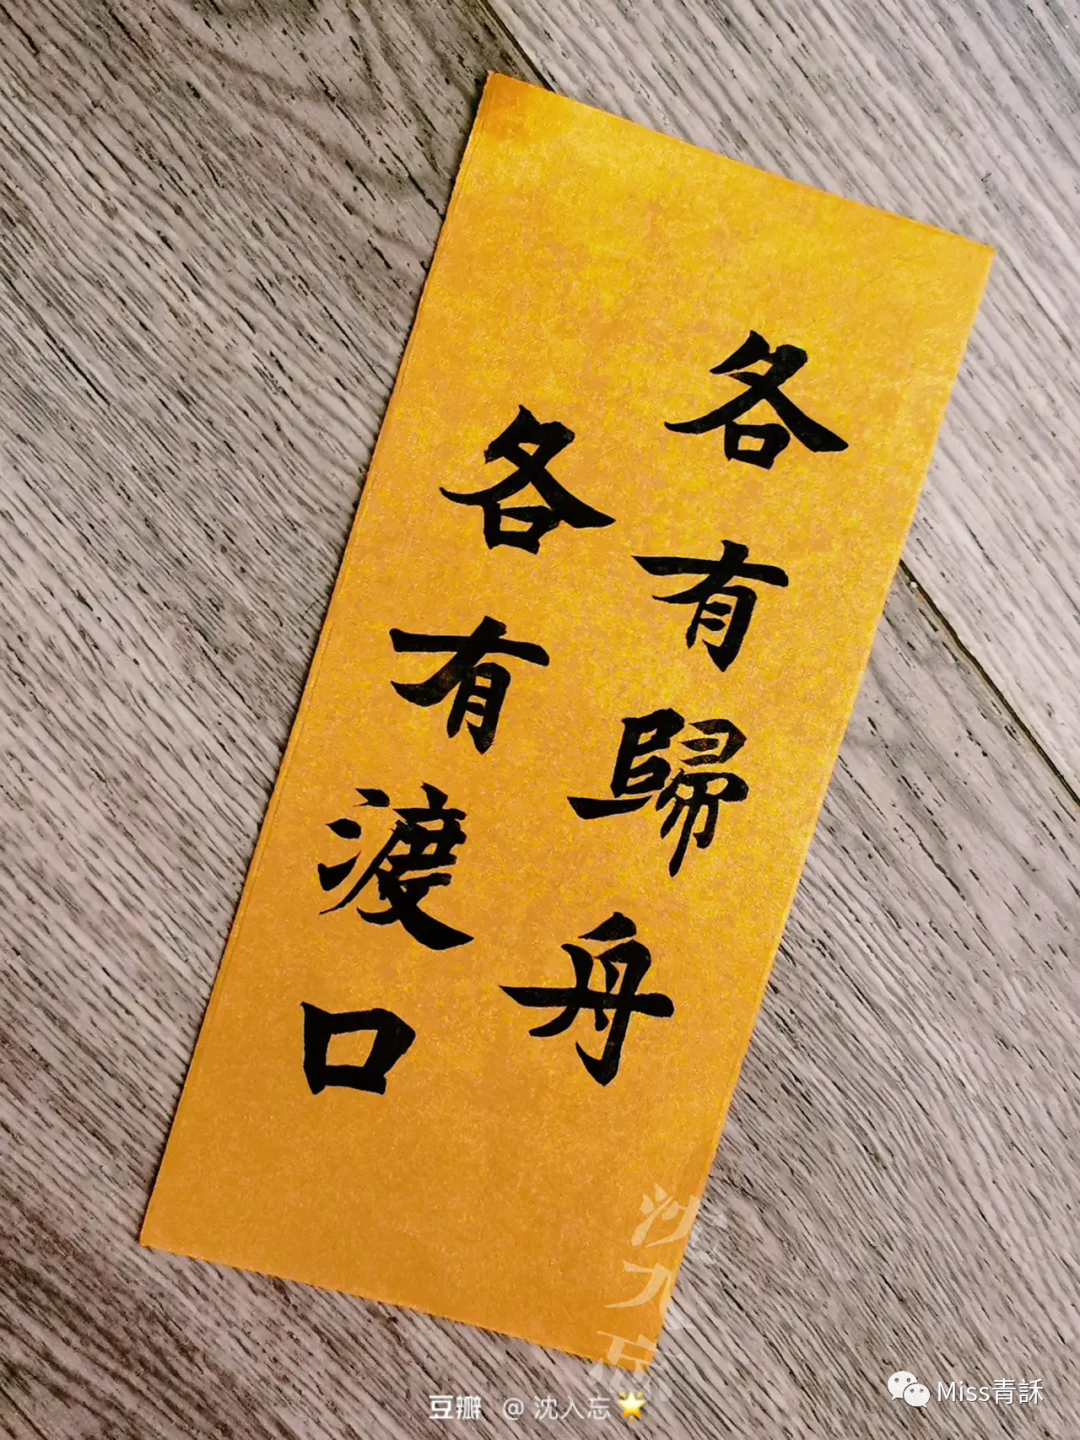 各有歸舟
各有渡口
豆瓣 @ 沈人忘
Miss青訸